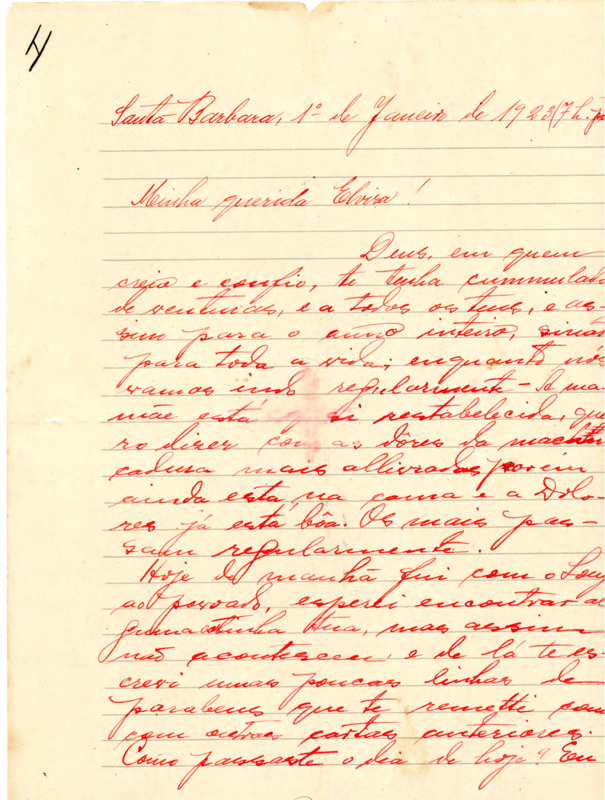 4
Santa Barbara, 1º de Janeiro de 1923 (7 h. p
Minha querida Elvira!
Deus, em quem
creio e confio, te tenha cummulado
de venturas, e a todos os teus, e as-
sim para o anno inteiro, sinão
para toda a vida; enquanto nós
vamos indo regularmente - A ma-
mãe está quasi restabelecida, que-
ro dizer com as dôres da machu-
cadura mais alliviadas porém
ainda está na cama e a Dolo-
res já está bôa. Os mais pas-
sam regularmente.
Hoje de manhã fui com o
ao povoado, esperei encontrar al
guma cartinha tua, mas assim
não aconteceu, e de lá te es-
crevi umas poucas linhas de
parabens que te remetti com
com outras cartas anteriores.
Como passaste o dia de hoje? Eu